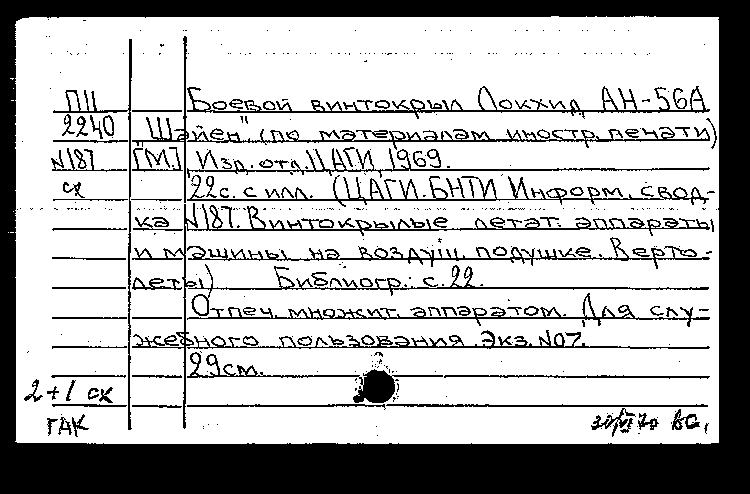 П11 Боевой винтокрыл Локхид АН-56А
2240 "Шайен" (по материалам иностр. печати)
N187 [М.], Изд. отд. ЦАГИ, 1969.
ск 22с. с илл. (ЦАГИ. БНТИ Информ. свод-
ка N187. Винтокрылые летат. аппараты
и машины на воздуш. подушке. Верто-
леты) Библиогр.: с. 22.
Отпеч. множит. аппаратом. Для слу-
жебного пользования. Экз. N07.
29см.
2+1 ск
ГАК 30/VI 70